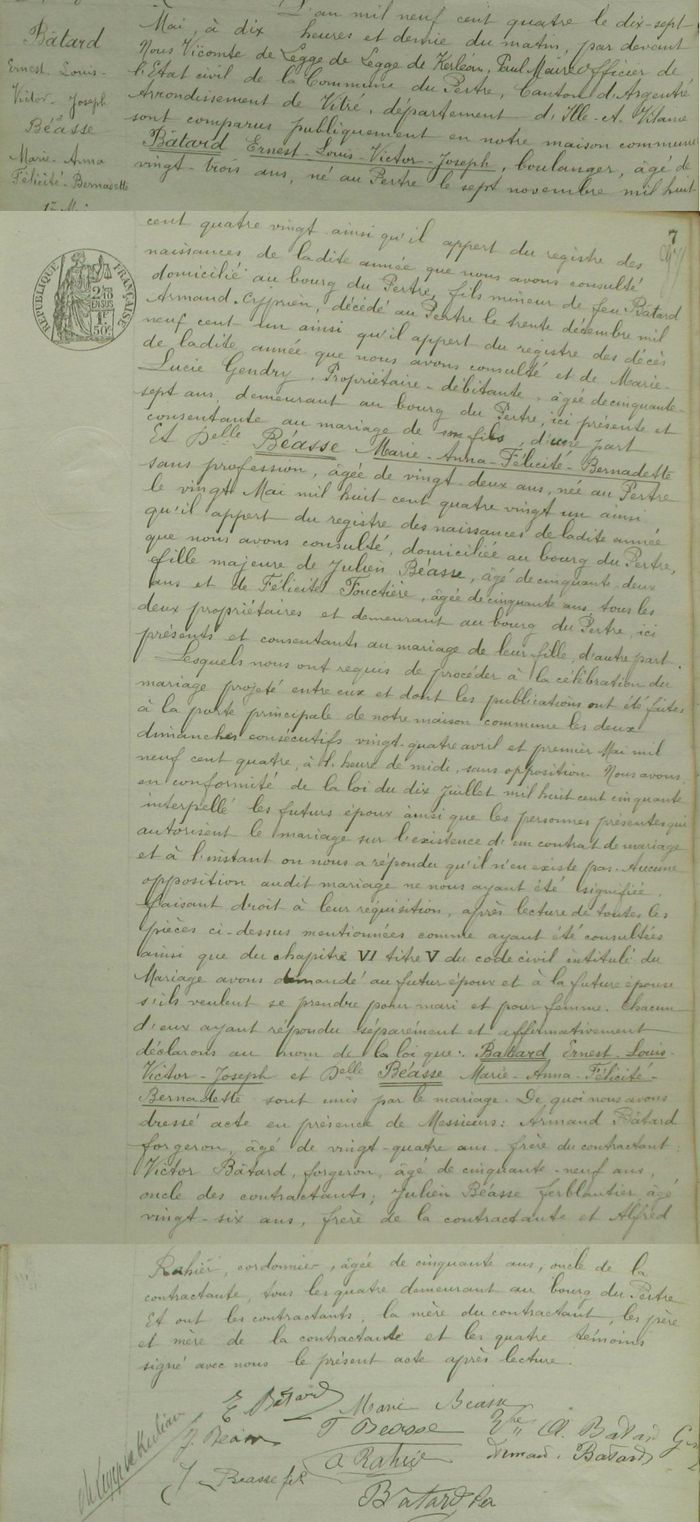 Bâtard
Ernest-Louis-
Victor-Joseph
Béasse
Marie-Anna
Félicité-Bernadette
17 Mai
L'an mil neuf cent quatre le dix-sept
Mai, à dix heures et demie du matin, par devant
Nous Vicomte de Legge de Legge de Kerlean, Paul Maire Officier de
l'Etat civil de la Commune du Pertre, Canton d'Argentré
Arrondissement de Vitré, département d'Ille-et-Vilaine
sont comparus publiquement en notre maison commune
Bâtard Ernest-Louis-Victor-Joseph, boulanger, âgé de
vingt-trois ans, né au Pertre le sept novembre mil huit
7
RÉPUBLIQUE FRANÇAISE
cent quatre vingt ainsi qu'il appert du registre des
naissances de ladite année que nous avons consulté
domicilié au bourg du Pertre, fils mineur de feu Bâtard
Armand-Cyprien, décédé au Pertre le trente décembre mil
neuf cent un ainsi qu'il appert du registre des décès
de ladite année que nous avons consulté et de Marie-
Lucie Gendry, Propriétaire-débitante, âgée de cinquante-
sept ans, demeurant au bourg du Pertre, ici présente et
consentante au mariage de fils, d'une part
Et Delle Béasse Marie-Anna-Félicité-Bernadette
sans profession, âgée de vingt-deux ans, née au Pertre
le vingt Mai mil huit cent quatre vingt un ainsi
qu'il appert du registre des naissances de ladite année
que nous avons consulté, domiciliée au bourg du Pertre,
fille majeure de Julien Béasse, âgé de cinquante-deux
ans et de Félicité Fouctière, âgée de cinquante ans, tous les
deux propriétaires et demeurant au bourg du Pertre, ici
présents et consentants au mariage de leur fille, d'autre part.
Lesquels nous ont requis de procéder à la célébration du
mariage projeté entre eux et dont les publications ont été faites
à la porte principale de notre maison commune les deux
dimanches consécutifs vingt-quatre avril et premier Mai mil
neuf cent quatre, à l'heure de midi, sans opposition. Nous avons
en conformité de la loi du dix Juillet mil huit cent cinquante
interpellé les futurs époux ainsi que les personnes présentes qui
autorisent le mariage sur l'existence d'un contrat de mariage
et à l'instant on nous a répondu qu'il n'en existe pas. Aucune
opposition audit mariage ne nous ayant été signifiée,
faisant droit à leur réquisition, après lecture de toutes les
pièces ci-dessus mentionnées comme ayant été consultées
ainsi que du chapitre VI titre V du code civil intitulé du
Mariage avons demandé au futur époux et à la future épouse
s'ils veulent se prendre pour mari et pour femme. Chacun
d'eux ayant répondu séparément et affirmativement
déclarons au nom de la loi que: Bâtard Ernest-Louis-
Victor-Joseph et Delle Béasse Marie-Anna-Félicité-
Bernadette sont unis par le mariage. De quoi nous avons
dressé acte en présence de Messieurs: Armand Bâtard
forgeron, âgé de vingt-quatre ans, frère du contractant;
Victor Bâtard, forgeron, âgé de cinquante-neuf ans,
oncle des contractants; Julien Béasse ferblantier, âgé
vingt-six ans, frère de la contractante et Alfred
Rahier, cordonnier, âgée de cinquante ans, oncle de la
contractante, tous les quatre demeurant au bourg du Pertre.
Et ont les contractants, la mère du contractant, les père
et mère de la contractante et les quatre témoins
signé avec nous le présent acte après lecture.
E Bâtard Marie Béasse
J. Béasse F Béasse Vve A. Batard
A Rahier Armand Batard
J Béasse fils
Batard
de Legge de Kerlean